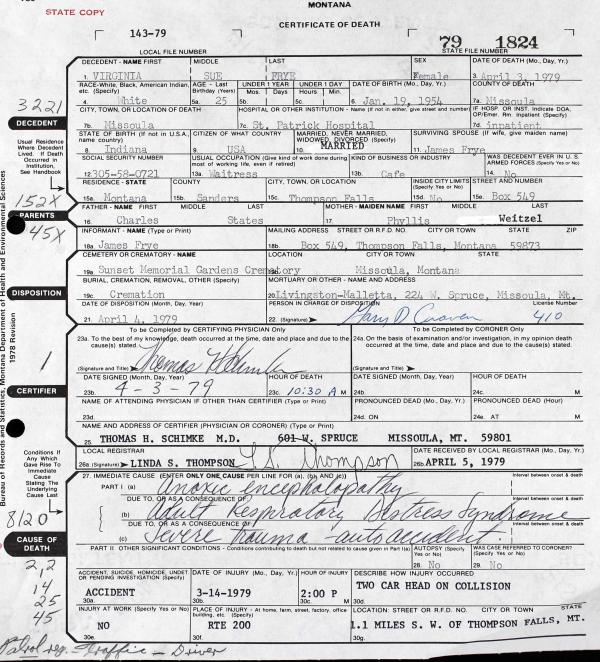 STATE COPY
MONTANA
CERTIFICATE OF DEATH
143-79
LOCAL FILE NUMBER
79 1824
STATE FILE NUMBER
DECEDENT - NAME FIRST MIDDLE LAST SEX DATE OF DEATH (Mo., Day, Yr.)
1. VIRGINIA SUE FRYE 2. Female 3. April 3, 1979
RACE-White, Black, American Indian, etc. (Specify) AGE - Last Birthday (Years) UNDER 1 YEAR Mos. Days UNDER 1 DAY Hours Min. DATE OF BIRTH (Mo., Day, Yr.) COUNTY OF DEATH
4. White 5a. 25 5b. 5c. 6. Jan. 19, 1954 7a. Missoula
CITY, TOWN, OR LOCATION OF DEATH HOSPITAL OR OTHER INSTITUTION - Name (If not in either, give street and number) IF HOSP. OR INST. Indicate DOA, OP/Emer. Rm. Inpatient (Specify)
7b. Missoula 7c. St. Patrick Hospital 7d. inpatient
STATE OF BIRTH (If not in U.S.A., name country) CITIZEN OF WHAT COUNTRY MARRIED, NEVER MARRIED, WIDOWED, DIVORCED (Specify) SURVIVING SPOUSE (If wife, give maiden name)
8. Indiana 9. USA 10. MARRIED 11. James Frye
SOCIAL SECURITY NUMBER USUAL OCCUPATION (Give kind of work done during most of working life, even if retired) KIND OF BUSINESS OR INDUSTRY WAS DECEDENT EVER IN U.S. ARMED FORCES (Specify Yes or No)
12. 305-58-0721 13a. Waitress 13b. Cafe 14. No
RESIDENCE - STATE COUNTY CITY, TOWN, OR LOCATION INSIDE CITY LIMITS (Specify Yes or No) STREET AND NUMBER
15a. Montana 15b. Sanders 15c. Thompson Falls 15d. No 15e. Box 549
FATHER - NAME FIRST MIDDLE LAST MOTHER - MAIDEN NAME FIRST MIDDLE LAST
16. Charles States 17. Phyllis Weitzel
INFORMANT - NAME (Type or Print) MAILING ADDRESS STREET OR R.F.D. NO. CITY OR TOWN STATE ZIP
18a. James Frye 18b. Box 549, Thompson Falls, Montana 59873
CEMETERY OR CREMATORY - NAME LOCATION CITY OR TOWN STATE
19a. Sunset Memorial Gardens Crematory Missoula, Montana
BURIAL, CREMATION, REMOVAL, OTHER (Specify) MORTUARY OR OTHER - NAME AND ADDRESS
19c. Cremation 20. Livingston-Malletta, 224 W. Spruce, Missoula, Mt.
DATE OF DISPOSITION (Month, Day, Year) PERSON IN CHARGE OF DISPOSITION License Number
21. April 4, 1979 22. (Signature) Gary D Craven 410
To be Completed by CERTIFYING PHYSICIAN Only To be Completed by CORONER Only
23a. To the best of my knowledge, death occurred at the time, date and place and due to the cause(s) stated. 24a. On the basis of examination and/or investigation, in my opinion death occurred at the time, date and place and due to the cause(s) stated.
(Signature and Title) Thomas H Schimke (Signature and Title)
DATE SIGNED (Month, Day, Year) HOUR OF DEATH DATE SIGNED (Month, Day, Year) HOUR OF DEATH
23b. 4-3-79 23c. 10:30 A M 24b. 24c. M
NAME OF ATTENDING PHYSICIAN IF OTHER THAN CERTIFIER (Type or Print) PRONOUNCED DEAD (Mo., Day, Yr.) PRONOUNCED DEAD (Hour)
23d. 24d. ON 24e. AT M
NAME AND ADDRESS OF CERTIFIER (PHYSICIAN OR CORONER) (Type or Print)
25. THOMAS H. SCHIMKE M.D. 601 W. SPRUCE MISSOULA, MT. 59801
LOCAL REGISTRAR DATE RECEIVED BY LOCAL REGISTRAR (Mo., Day, Yr.)
26a (Signature) LINDA S. THOMPSON L.S. Thompson 26b APRIL 5, 1979
27. IMMEDIATE CAUSE (ENTER ONLY ONE CAUSE PER LINE FOR (a), (b), AND (c)) Interval between onset & death
PART I (a) Anoxic encephalopathy
DUE TO, OR AS A CONSEQUENCE OF Interval between onset & death
(b) Adult Respiratory Distress Syndrome
DUE TO, OR AS A CONSEQUENCE OF Interval between onset & death
(c) Severe trauma - auto accident.
PART II OTHER SIGNIFICANT CONDITIONS - Conditions contributing to death but not related to cause given in Part I (a) AUTOPSY (Specify Yes or No) WAS CASE REFERRED TO CORONER? (Specify Yes or No)
28. No 29. No
ACCIDENT, SUICIDE, HOMICIDE, UNDET. OR PENDING INVESTIGATION (Specify) DATE OF INJURY (Mo., Day, Yr.) HOUR OF INJURY DESCRIBE HOW INJURY OCCURRED
30a. ACCIDENT 30b. 3-14-1979 30c. 2:00 P M 30d. TWO CAR HEAD ON COLLISION
INJURY AT WORK (Specify Yes or No) PLACE OF INJURY - At home, farm, street, factory, office building, etc. (Specify) LOCATION: STREET OR R.F.D. NO. CITY OR TOWN STATE
30e. NO 30f. RTE 200 30g. 1.1 MILES S. W. OF THOMPSON FALLS, MT.
3221
DECEDENT
Usual Residence Where Deceased Lived. If Death Occurred in Institution, See Handbook
152X
PARENTS
45X
DISPOSITION
1
CERTIFIER
Conditions if Any Which Gave Rise To Immediate Cause Stating The Underlying Cause Last
8120
CAUSE OF DEATH
2,2
14
25
45
Bureau of Records and Statistics, Montana Department of Health and Environmental Sciences
1978 Revision
Patrol reg. traffic - Driver